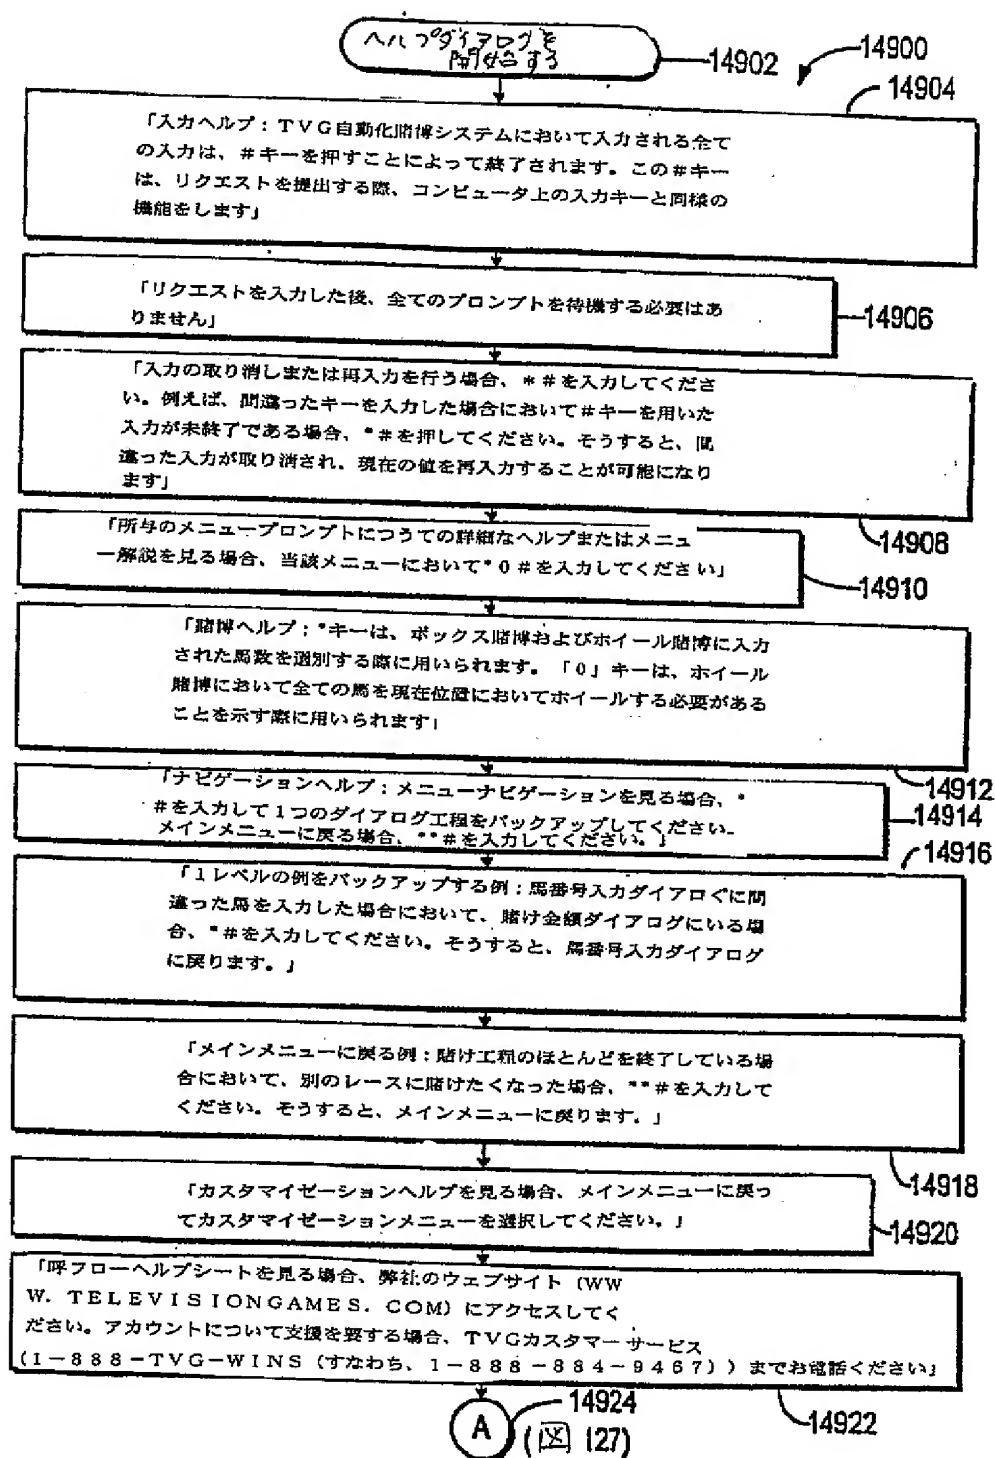 ヘルプダイアログを
開始する
14902
14900
14904
「入力ヘルプ：ＴＶＧ自動化賭博システムにおいて入力される全て
の入力は、＃キーを押すことによって終了されます。この＃キー
は、リクエストを提出する際、コンピュータ上の入力キーと同様の
機能をします」
「リクエストを入力した後、全てのプロンプトを待機する必要はあ
りません」
14906
「入力の取り消しまたは再入力を行う場合、＊＃を入力してくださ
い。例えば、間違ったキーを入力した場合において＃キーを用いた
入力が未終了である場合、*＃を押してください。そうすると、間
違った入力が取り消され、現在の値を再入力することが可能になり
ます」
14908
「所与のメニュープロンプトにつうての詳細なヘルプまたはメニュ
ー解説を見る場合、当該メニューにおいて*０＃を入力してください」
14910
「賭博ヘルプ：*キーは、ボックス賭博およびホイール賭博に入力
された馬数を選別する際に用いられます。「０」キーは、ホイール
賭博において全ての馬を現在位置においてホイールする必要がある
ことを示す際に用いられます」
14912
「ナビゲーションヘルプ：メニューナビゲーションを見る場合、*
＃を入力して１つのダイアログ工程をバックアップしてください。
メインメニューに戻る場合、**＃を入力してください。」
14914
14916
「１レベルの例をバックアップする例：馬番号入力ダイアロぐに間
違った馬を入力した場合において、賭け金額ダイアログにいる場
合、*＃を入力してください。そうすると、馬番号入力ダイアログ
に戻ります。」
「メインメニューに戻る例：賭け工程のほとんどを終了している場
合において、別のレースに賭けたくなった場合、**＃を入力して
ください。そうすると、メインメニューに戻ります。」
14918
「カスタマイゼーションヘルプを見る場合、メインメニューに戻っ
てカスタマイゼーションメニューを選択してください。」
14920
「呼フローヘルプシートを見る場合、弊社のウェブサイト（ＷＷ
Ｗ．ＴＥＬＥＶＩＳＩＯＮＧＡＭＥＳ．ＣＯＭ）にアクセスしてく
ださい。アカウントについて支援を要する場合、ＴＶＧカスタマーサービス
（１－８８８－ＴＶＧ－ＷＩＮＳ（すなわち、１－８８８－８８４－９４６７））までお電話ください」
14922
A
14924
(図 127)